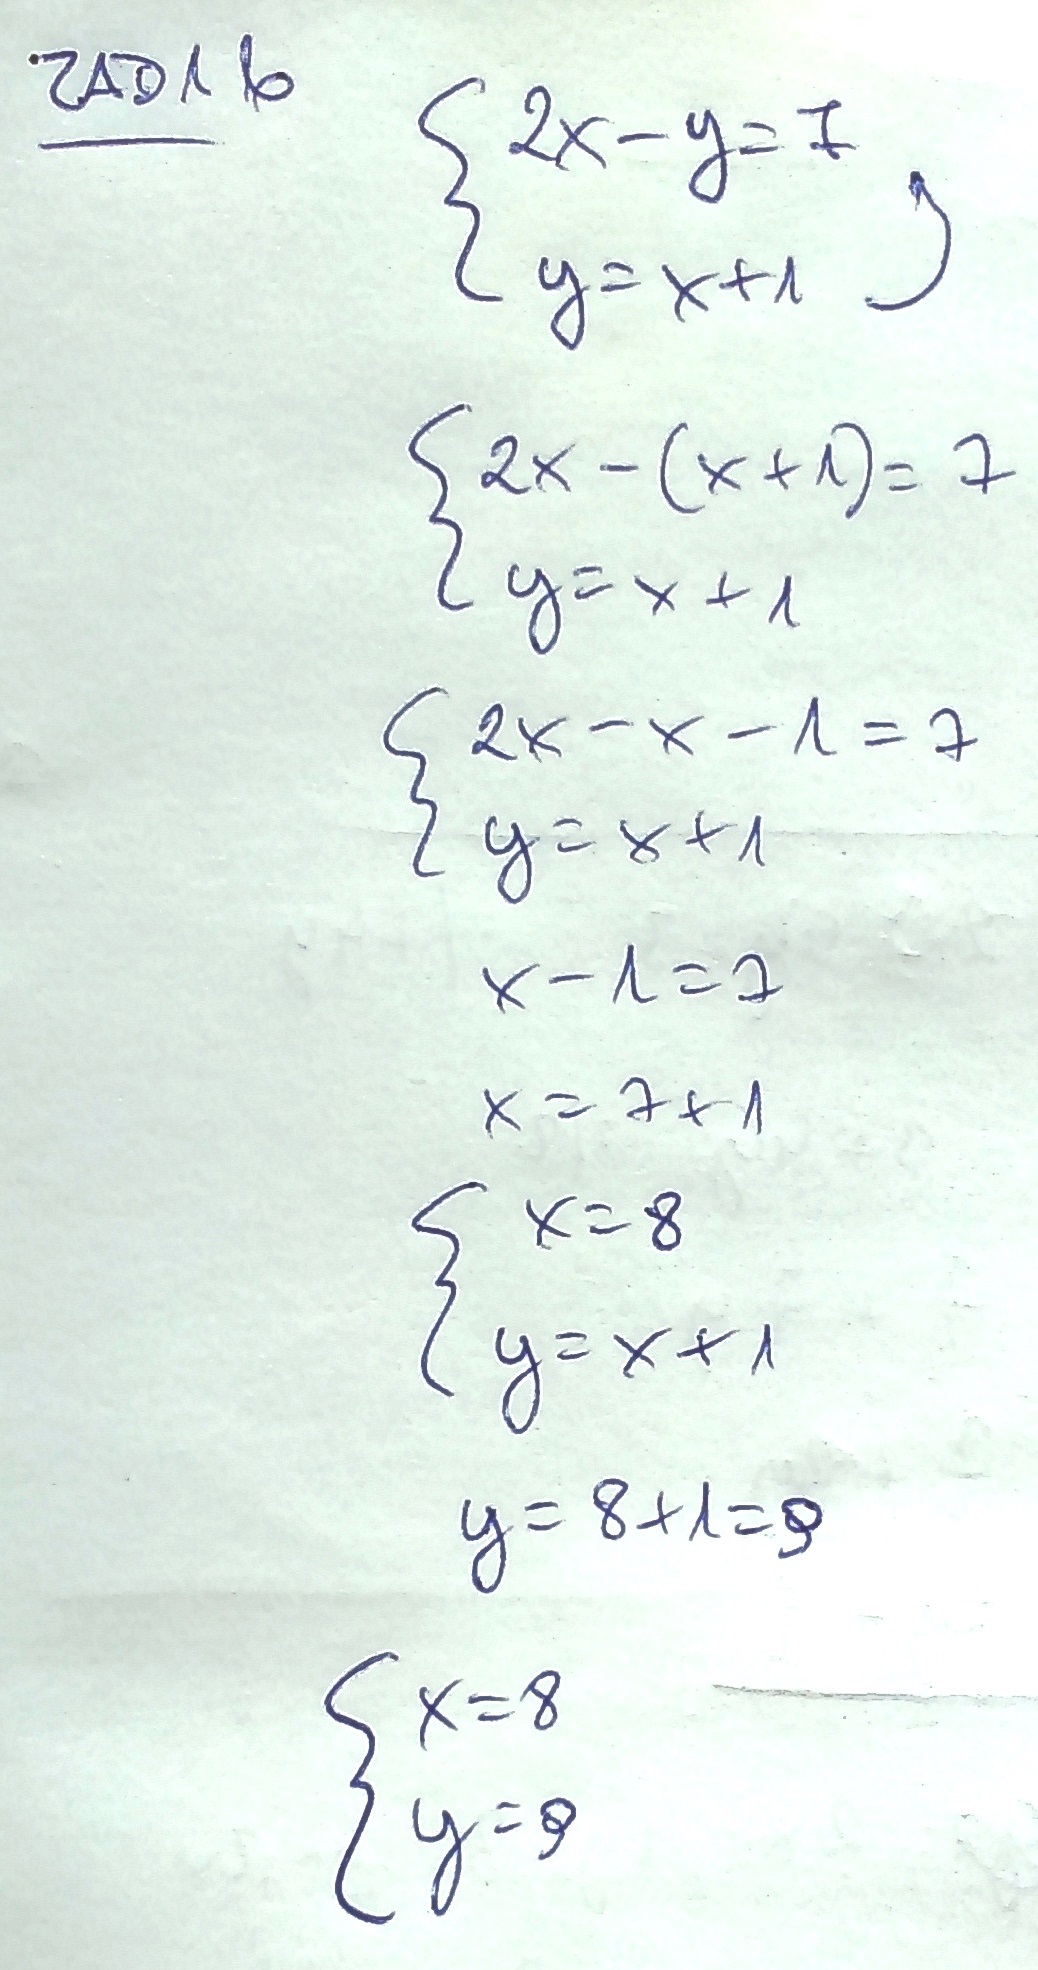 ZAD1 b
2x - y = 7
y = x + 1
2x - (x + 1) = 7
y = x + 1
2x - x - 1 = 7
y = x + 1
x - 1 = 7
x = 7 + 1
x = 8
y = x + 1
y = 8 + 1 = 9
x = 8
y = 9